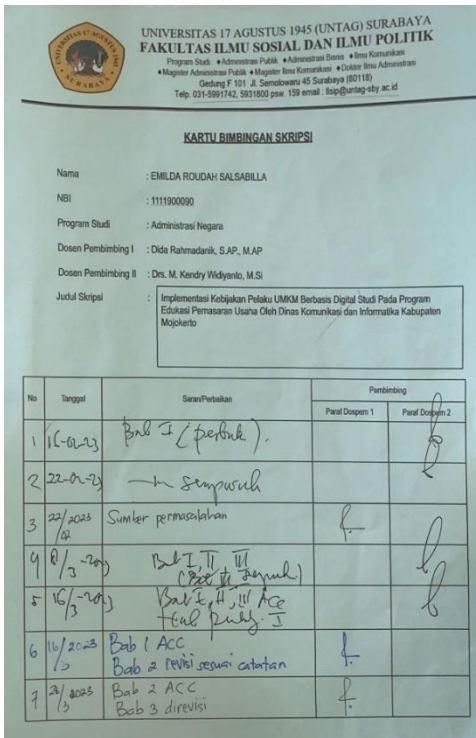 UNIVERSITAS 17 AGUSTUS 1945 (UNTAG) SURABAYA
FAKULTAS ILMU SOSIAL DAN ILMU POLITIK
Program Studi : ♦Administrasi Publik ♦Administrasi Bisnis ♦Ilmu Komunikasi
♦Magister Administrasi Publik ♦Magister Ilmu Komunikasi ♦Doktor Ilmu Administrasi
Gedung F 101 Jl. Semolowaru 45 Surabaya (60118)
Telp. 031-5991742, 5931800 psw. 159 email : fisip@untag-sby.ac.id
KARTU BIMBINGAN SKRIPSI
Nama : EMILDA ROUDAH SALSABILLA
NBI : 1111900090
Program Studi : Administrasi Negara
Dosen Pembimbing I : Dida Rahmadanik, S.AP., M.AP
Dosen Pembimbing II : Drs. M. Kendry Widiyanto, M.Si
Judul Skripsi : Implementasi Kebijakan Pelaku UMKM Berbasis Digital Studi Pada Program
Edukasi Pemasaran Usaha Oleh Dinas Komunikasi dan Informatika Kabupaten
Mojokerto
No Tanggal Saran/Perbaikan Pembimbing
Paraf Dospem 1 Paraf Dospem 2
1 Bab I
2
3 22/02 2023 Sumber permasalahan
4 Bab I, II, III
5 16/3 Bab I, II, III Acc
6 16/3 2023 Bab 1 ACC
Bab 2 revisi sesuai catatan
7 Bab 2 ACC
Bab 3 direvisi